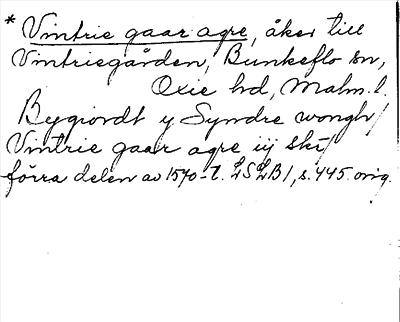 * Vintrie gaar agre, åker till
Vintriegården, Bunkeflo sn,
Oxie hd, Malm. l.
Bygiordt y Syndre wongh/
Vintrie gaar agre iij ski/
förra delen av 1570-t. LSLB1, s. 445. orig.